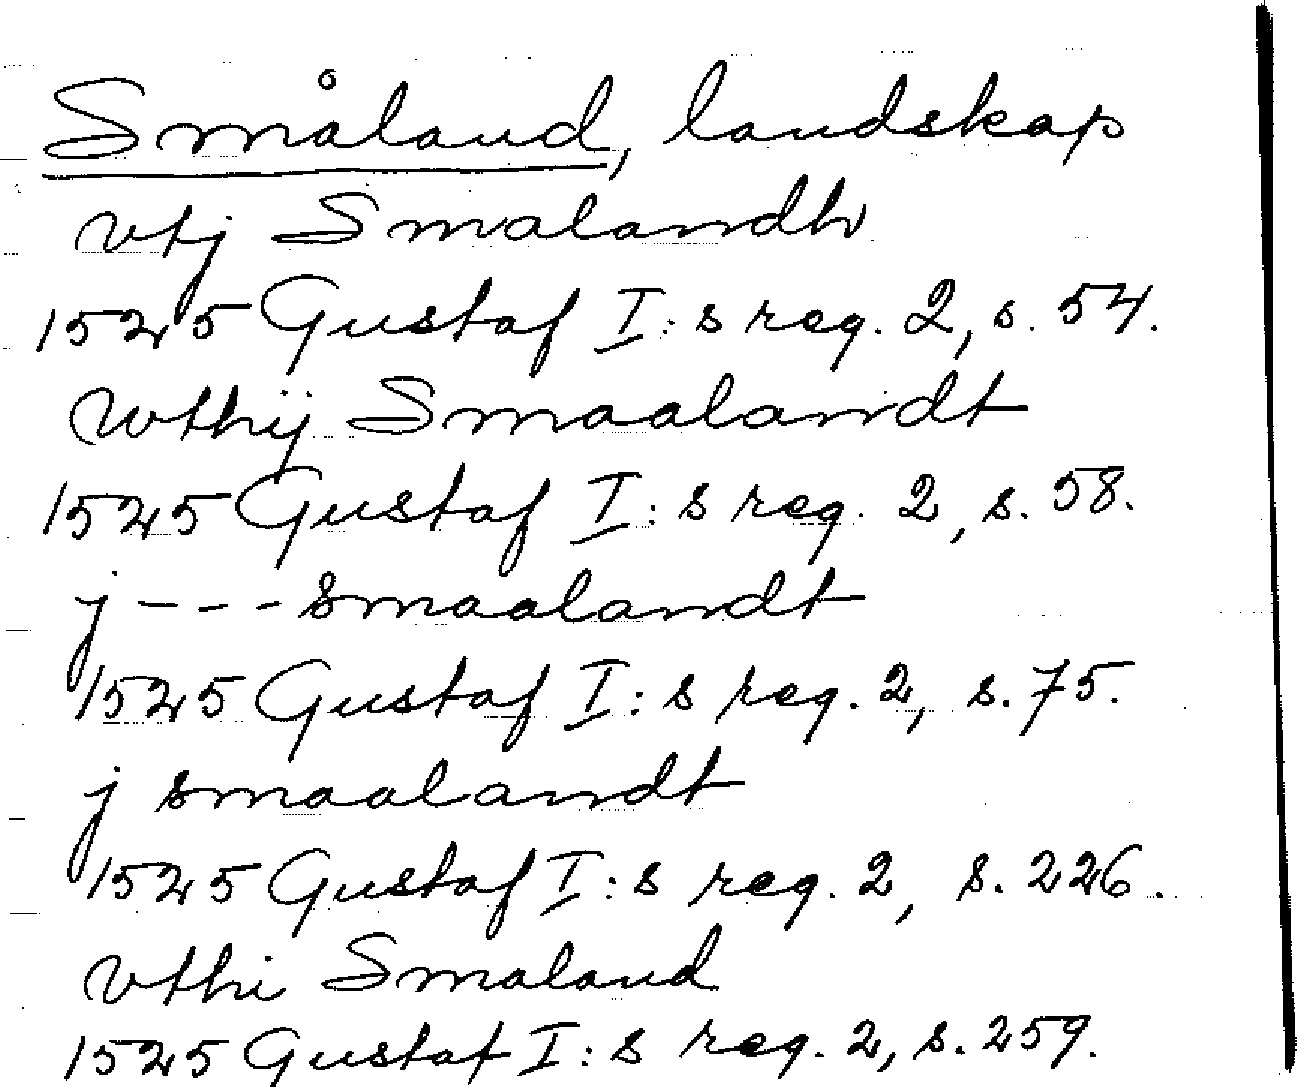 Småland, landskap
vtj Smalandh
1525 Gustaf I:s reg. 2, s. 54.
wthij Smaalandt
1525 Gustaf I:s reg. 2, s. 58.
j - - - smaalandt
1525 Gustaf I:s reg. 2, s. 75.
j smaalandt
1525 Gustaf I:s reg. 2, s. 226.
vthi Smaland
1525 Gustaf I:s reg. 2, s. 259.